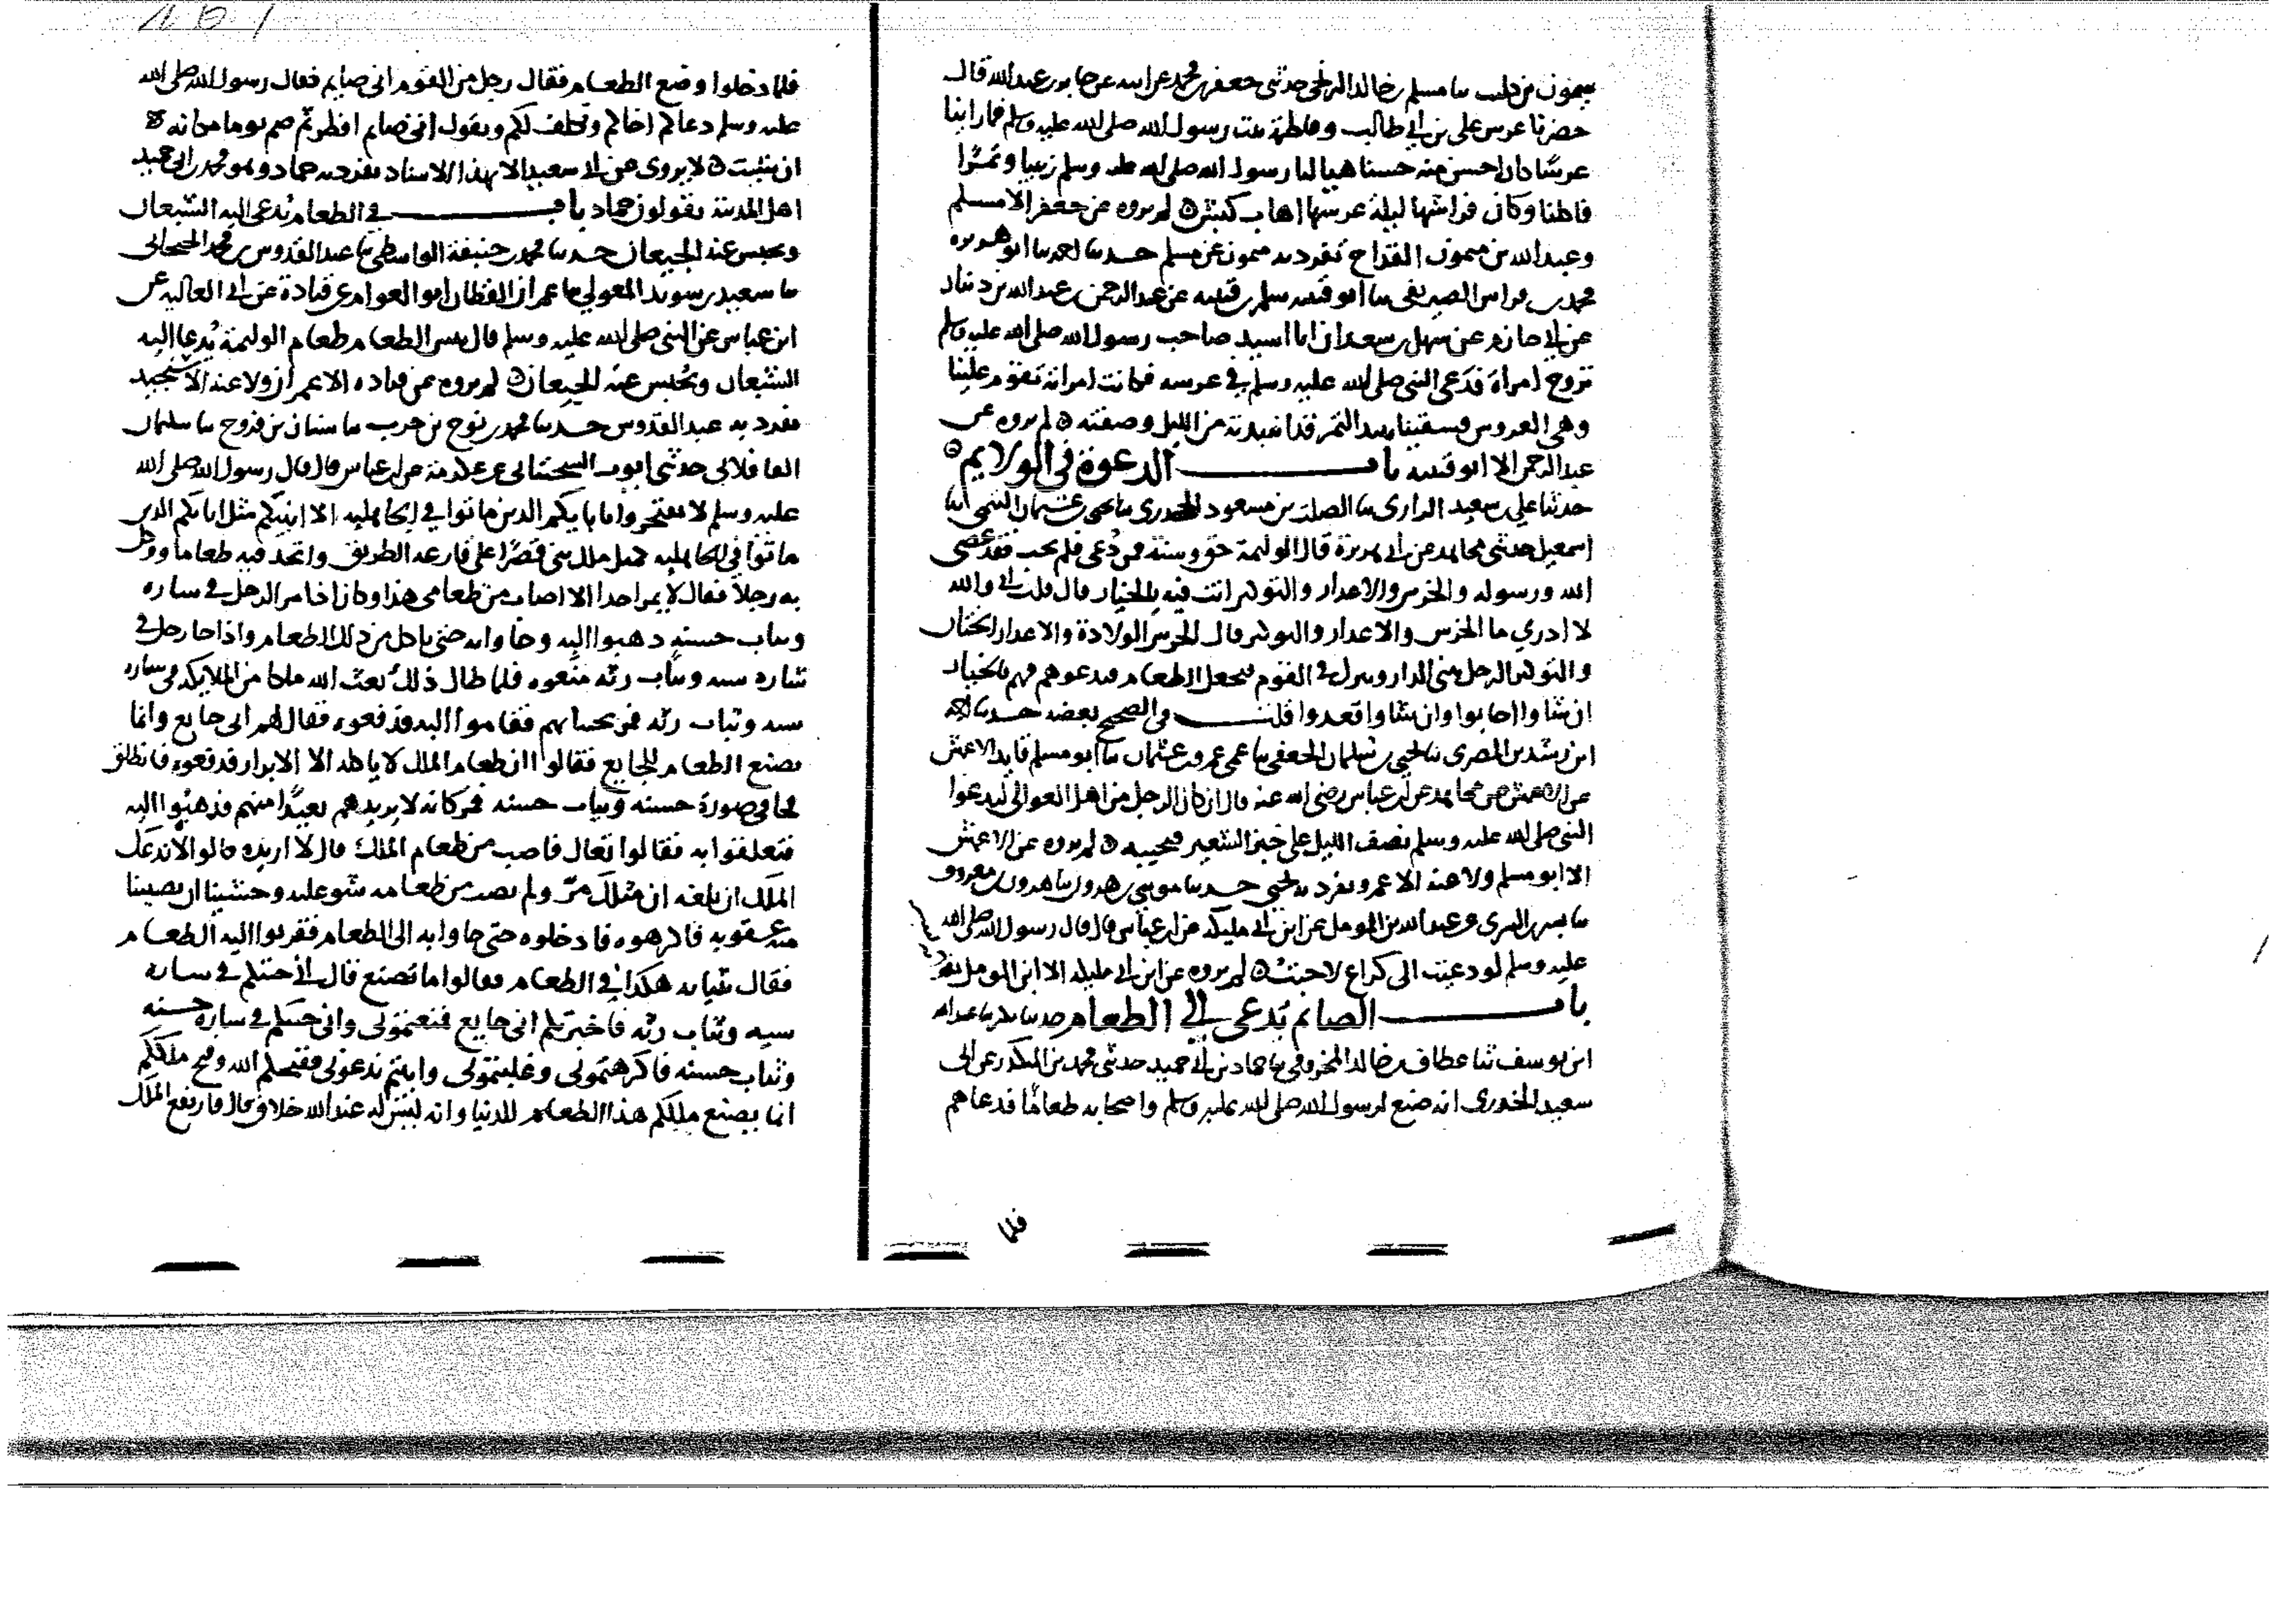 ميمون بن كليب ثنا مسلم بن خالد الزنجي حدثني جعفر بن محمد عن ابيه عن جابر بن عبد الله قال
حضرنا عرس علي بن ابي طالب وفاطمة بنت رسول الله صلى الله عليه وسلم فما راينا
عرسا كان احسن منه حسنا هيا لنا رسول الله صلى الله عليه وسلم زبيبا وتمرا
فاكلنا وكان فراشها ليلة عرسها اهاب كبش لم يروه عن جعفر الا مسلم
وعبد الله بن ميمون القداح تفرد به ميمون عن مسلم حدثنا احمد ثنا ابو هريره
محمد بن فراس الصيرفي ثنا ابو قتيبه سلم بن قتيبه عن عبد الرحمن بن عبد الله بن دينار
عن ابي حازم عن سهل بن سعد ان ابا اسيد صاحب رسول الله صلى الله عليه وسلم
تزوج امراة فدعى النبي صلى الله عليه وسلم في عرسه فكانت امراته تقوم علينا
وهي العروس فسقينا نبيد التمر قد انبدته من الليل وصفته لم يروه عن
عبد الرحمن الا ابو قتيبه باب الدعوة في الولايم
حدثنا علي بن سعيد الرازي ثنا الصلت بن مسعود الجحدري ثنا يحيى بن عثمان التيمي ثنا
اسمعيل حدثني مجاهد عن ابي هريرة قال الوليمة حق وسنة فمن دعي فلم يجب فقد عصى
الله ورسوله والخرس والاعدار والتوكير انت فيه بالخيار قال قلت اني والله
لا ادري ما الخرس والاعدار والتوكير قال الخرس الولادة والاعدار الختان
والتوكير الرجل يبني الدار وينزل في القوم فيجعل الطعام فيدعوهم فهم بالخيار
ان شاوا اجابوا وان شاوا قعدوا قلت في الصحيح بعضه حدثنا احمد
ابن رشدين المصري ثنا يحيى بن سليمان الجعفي ثنا عمي عمرو بن عثمان ثنا ابو مسلم قايد الاعمش
عن الاعمش عن مجاهد عن ابن عباس رضي الله عنه قال ان كان الرجل من اهل العوالي ليدعوا
النبي صلى الله عليه وسلم نصف الليل على خبز الشعير فيجيبه لم يروه عن الاعمش
الا ابو مسلم ولا عنه الا عمرو تفرد به يحيى حدثنا موسى بن هرون ثنا هرون بن معروف
ثنا بشر بن السري عن عبد الله بن المومل عن ابن ابي مليكه عن ابن عباس قال قال رسول الله صلى الله
عليه وسلم لو دعيت الى كراع لاجبت لم يروه عن ابن ابي مليكه الا ابن المومل
باب الصائم يدعى الى الطعام حدثنا بكر ثنا عبد الله
ابن يوسف ثنا عطاف بن خالد المخزومي ثنا حماد بن ابي حميد حدثني محمد بن المنكدر عن ابي
سعيد الخدري انه صنع لرسول الله صلى الله عليه وسلم واصحابه طعاما فدعاهم
فلما
فلما دخلوا وضع الطعام فقال رجل من القوم اني صايم فقال رسول الله صلى الله
عليه وسلم دعاكم اخاكم وتكلف لكم ويقول اني صايم افطر ثم صم يوما مكانه
ان شئت لا يروى عن ابي سعيد الا بهذا الاسناد تفرد به حماد وهو محمد بن ابي حميد
اهل المدينة يقولون حماد باب في الطعام يدعى اليه الشبعان
ويحبس عنه الجيعان حدثنا محمد بن حنيفة الواسطي ثنا عبد القدوس بن محمد الحبحابي
ثنا سعيد بن سويد المعولي ثنا عمران القطان ابو العوام عن قتادة عن ابي العاليه عن
ابن عباس عن النبي صلى الله عليه وسلم قال بئس الطعام طعام الوليمة يدعا اليه
الشبعان ويحبس عنه الجيعان لم يروه عن قتاده الا عمران ولا عنه الا سعيد
تفرد به عبد القدوس حدثنا محمد بن نوح بن حرب ثنا شيبان بن فروخ ثنا سليمان
العافلاني حدثني ايوب السختياني عن عكرمة عن ابن عباس قال قال رسول الله صلى الله
عليه وسلم لا تفتخروا بابايكم الذين ماتوا في الجاهليه الا انبيكم مثل ابايكم الذين
ماتوا في الجاهليه كمثل ملك بنى قصرا على قارعة الطريق واتخذ فيه طعاما ووكل
به رجلا فقال لا يمر احد الا اصاب من طعامي هذا وكان اذا مر الرجل في ساره
وثياب حسنه ذهبوا اليه وجاوا به حتى ياكل من ذلك الطعام واذا جا رجل في
شاره سيه وثياب رثه منعوه فلما طال ذلك بعث الله ملكا من الملايكه في شاره
سيه وثياب رثه فمر بجنباتهم فقاموا اليه فدفعوه فقال لهم اني جايع وانما
يصنع الطعام للجايع فقالوا ان طعام الملك لا ياكله الا الابرار فدفعوه فانطلق
فجا في صورة حسنه وثياب حسنه فمر كانه لا يريدهم بعيدا منهم فذهبوا اليه
فتعلقوا به فقالوا تعال فاصب من طعام الملك قال لا اريده قالوا لا ندعك
الملك ان بلغه ان مثلك مر ولم يصب من طعامه شق عليه وخشينا ان يصيبنا
منه عقوبه فاكرهوه فادخلوه حتى جاوا به الى الطعام فقربوا اليه الطعام
فقال بثيابه هكذا في الطعام فقالوا ما تصنع قال اني جئتكم في ساره
سيه وثياب رثه فاخبرتكم اني جايع فمنعتموني واني جئتكم في ساره حسنه
وثياب حسنه فاكرهتموني وغلبتموني وابيتم تدعوني فقبحكم الله وقبح ملككم
انما يصنع ملككم هذا الطعام للدنيا وانه ليس له عند الله خلاق قال فارتفع الملك